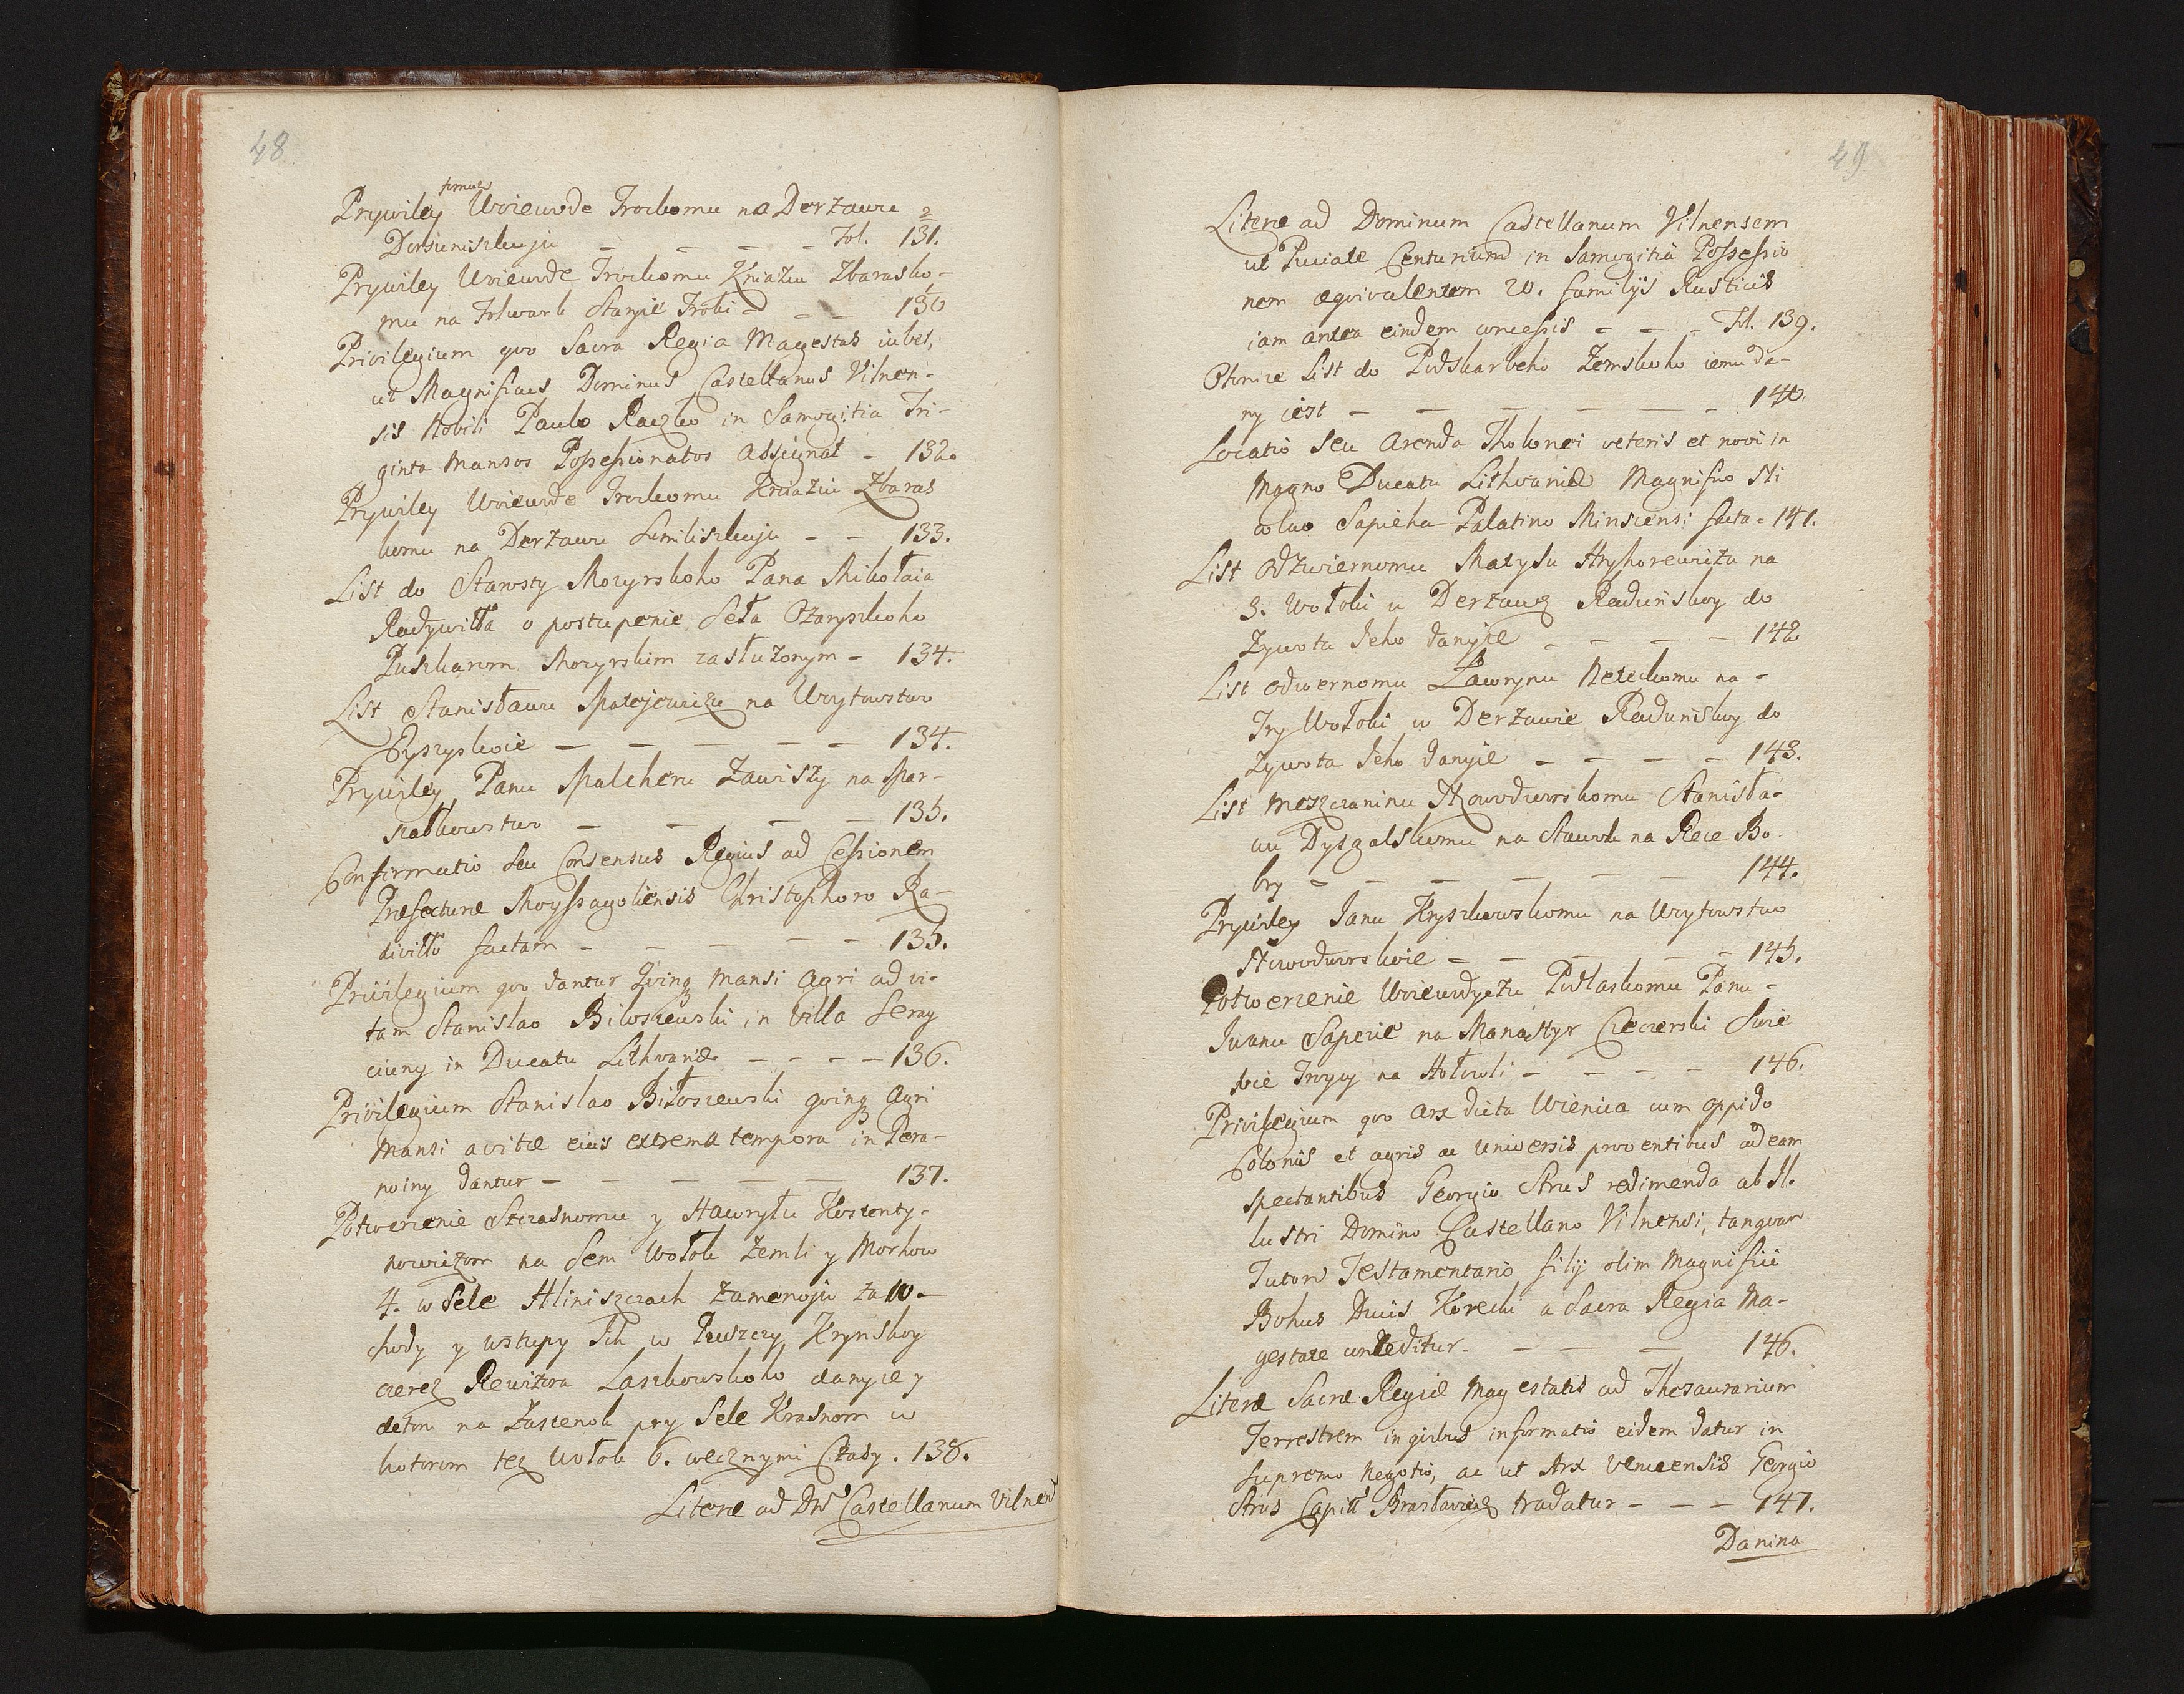 48
tomuż
Prywiley Woiewode Trockomu na Derżawu
Dorsuniszkuju - - - - Fol. 131. 2
Prywiley Woiewode Trockomu Kniaziu Zbarasko-
mu na Folwark Staryie Troki - - - 130
Privilegium quo Sacra Regia Magestas iubet,
ut Magnificus Dominus Castellanus Vilnen-
sis Nobili Paulo Raczko in Samogitia Tri-
ginta Mansos Possessionatos Assignat - 132.
Prywiley Woiewode Trockomu Kniaziu Zbaras
komu na Derżawu Somiliszkuju - - 133.
List do Starosty Mozyrskoho Pana Mikołaia
Radzywiłła o postupenie Seła Ożaryszkoho
Puszkarom Mozyrskim zasłużonym - 134.
List Stanisławu Matejewizu na Woytowstwo
Pyszyskoie - - - - - 134.
Prywiley Panu Malcheru Zawiszy na Mar-
szałkowstwo - - - - 135.
Confirmatio seu Consensus Regius ad Cessionem
Præfecturæ Moyssagoliensis Christophoro Ra-
diviłło factam - - - - - 135.
Privilegium quo dantur Quinq Mansi Agri ad vi-
tam Stanislao Biloszewski in Villa Seray
ciuny in Ducatu Lithvaniæ - - - - 136.
Privilegium Stanislao Biłoszewski quinq Agri
Mansi a vitæ eius extrema tempora in Pera-
noiny dantur - - - - - 137.
Potwerzenie Strasnomu y Hawryłu Kostenty-
nowiżom na Sem Wołok Zemli y Morhow
4. w Sele Hliniszczach Zamenoju za 10 -
chody y wstupy Ich w Puszczy Krynskoy
czerez Rewizora Laszkowskoho danyie y
detom na Zastenok pry Sele Krasnom w
kotorom tez Wołok 6. wecznymi Czasy. 138.
Literæ ad Dnũ Castellanum Vilneñ
49
Literæ ad Dominum Castellanum Vilnensem
ut Puciatæ Centurium in Samogitia Possessio
nem æquivalentem 20. familijs Rusticis
iam antea eindem concessis - - - Fol. 139.
Otomże List do Podskarbeho Zemskoho iemu da-
ny iest - - - - - - 140.
Locatio seu Arenda Tholonei veteris et novi in
Magno Ducatu Lithvaniæ Magnifico Ni
colao Sapieha Palatino Minscensi facta - 141.
List Odzwiernomu Matysu Hryhorewiżu na
3. Wołoki u Derzawę Raduńskoy do
Zywota Jeho danyie - - - - 142
List odwernomu Ławrynu Neteckomu na -
Try Wołoki w Derżawie Radunskoy do
Zywota Jeho danyie - - - - 143.
List Meszczaninu Nowodworskomu Stanisła-
wu Dyszalskomu na Stawok na Rece Bo-
bry - - - - - - 144.
Prywiley Janu Kryszkowskomu na Woytowstwo
Nowodworskoie - - - - - 145.
Potwerzenie Woiewodyczu Podlaskomu Panu -
Iwanu Sapezie na Manastyr Czeczerski Swie
toie Troycy na Hołowli - - - - 146.
Privilegium quo Arx dicta Wienica cum oppido
Colonis et agris ac Universis proventibus ad eam
spectantibus Georgio Strus redimenda ab Il.
lustri Domino Castellano Vilnensi, tanquam
Tutori Testamentario filij olim Magnifici
Bohus Ducis Korecki a Sacra Regia Ma-
gestate conceditur - - - - 146.
Literæ Sacræ Regiæ Magestatis ad Thesaurarium
Terrestrem in quibus informatio eidem datur in
supremo Negotio, ac ut Arx Veniecensis Georgio
Strus Capitt Brasłavieñ tradatur - - - 147.
Danina